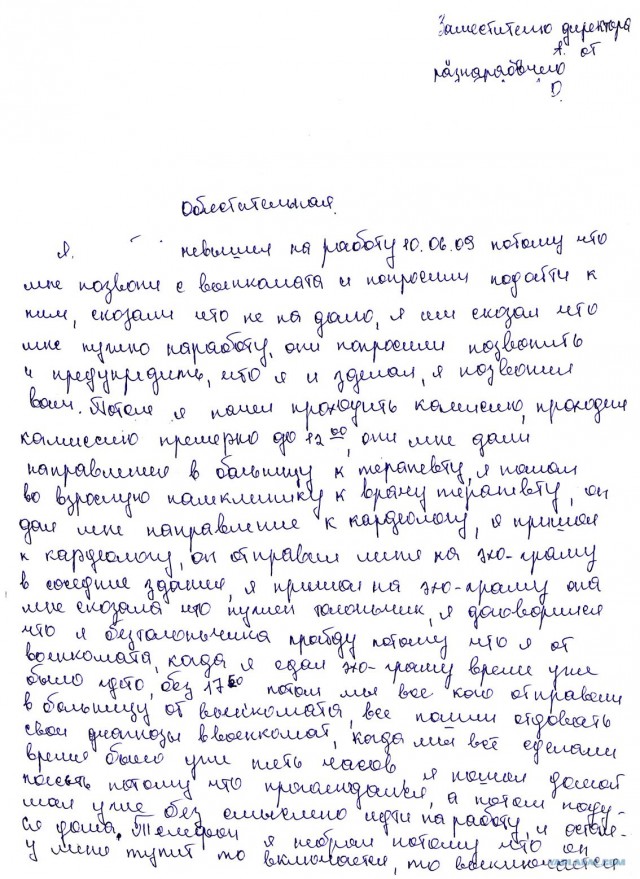 Заместителю директора
А. от
разнарабочего
D.
Обяестительная.
Я. невышел на работу 10.06.09 потому что
мне позвони с воинкомата и попросили подойти к
ним, сказали что не на далго, я им сказал что
мне нужно наработу, они попросили позвонить
и предупредить, что я и зделал, я позвонил
вам. Потом я пошел проходить камисию, проходил
камиссию премерно до 12 00, они мне дали
направление в больницу к терапевту, я пошол
во взрослую паликлинику к врачу терапевту, он
дал мне направление к кардеологу, я пришол
к кардеологу, он отправил меня на эхо-граму
в соседние здание, я пришол на эхо-граму она
мне сказала что нужен талончик, я договорился
что я безталончика пройду потому что я от
воинкомата, когда я сдал эхо-граму время уже
было где то, без 17 00 потом мы все кого отправели
в больницу от воинкомата, все пошли отдовать
свои диагнозы ввоенкомат, когда мы всё сделали
время было уже пять часов я пошол домой
поесть потому что прогалодался, а потом поду-
мал уже без смыслено идти на работу, и остал-
ся дома. Телефон я неброл потому что он
у меня тупит то включается, то выключается